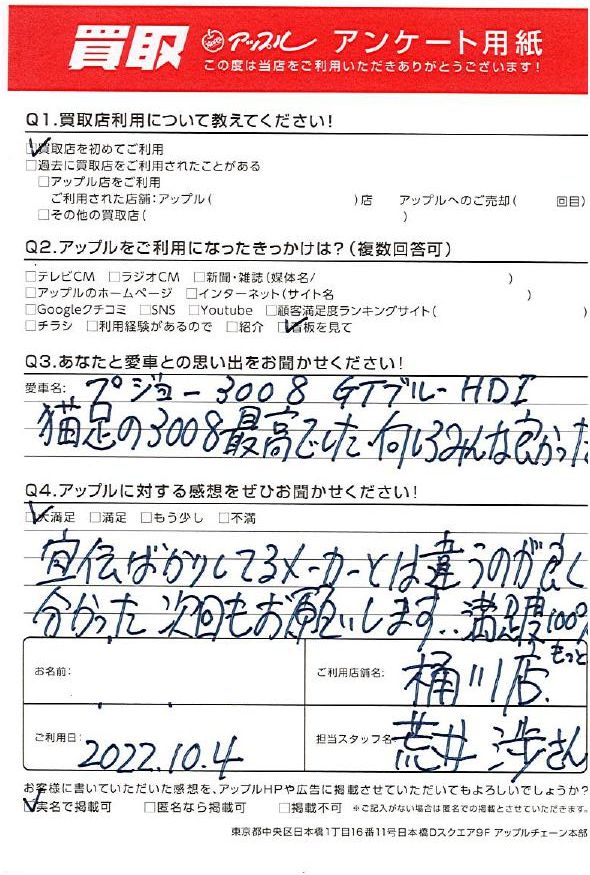 買取 アップル アンケート用紙
この度は当店をご利用いただきありがとうございます!
Q1.買取店利用について教えてください!
買取店を初めてご利用
□過去に買取店をご利用されたことがある
□アップル店をご利用
ご利用された店舗:アップル( )店 アップルへのご売却( 回目)
□その他の買取店( )
Q2.アップルをご利用になったきっかけは?(複数回答可)
□テレビCM □ラジオCM □新聞・雑誌(媒体名/ )
□アップルのホームページ □インターネット(サイト名 )
□Googleクチコミ □SNS □Youtube □顧客満足度ランキングサイト( )
□チラシ □利用経験があるので □紹介 □看板を見て
Q3.あなたと愛車との思い出をお聞かせください!
愛車名: プジョー3008 GTブルーHDI
猫足の3008最高でした 何しろみんな良かった
Q4.アップルに対する感想をぜひお聞かせください!
□大満足 □満足 □もう少し □不満
宣伝ばかりしてるメーカーとは違うのが良く
分かった 次回もお願いします.. 満足度100%
もっと
お名前: ご利用店舗名: 桶川店.
ご利用日: 2022.10.4 担当スタッフ名 荒井 渉さん
お客様に書いていただいた感想を、アップルHPや広告に掲載させていただいてもよろしいでしょうか?
□実名で掲載可 □匿名なら掲載可 □掲載不可 ※ご記入がない場合は匿名での掲載とさせていただきます。
東京都中央区日本橋1丁目16番11号日本橋Dスクエア9F アップルチェーン本部